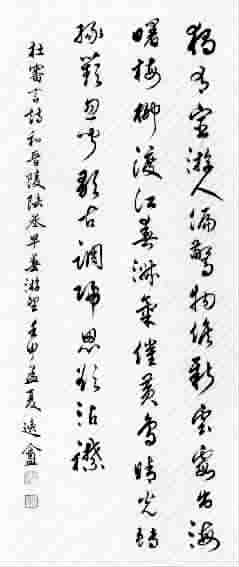 獨有宦遊人偏驚物候新雲霞出海
曙梅柳渡江春淑氣催黃鳥晴光轉
綠蘋忽聞歌古調歸思欲沾襟
杜審言詩和晉陵陸丞早春遊望壬申孟夏